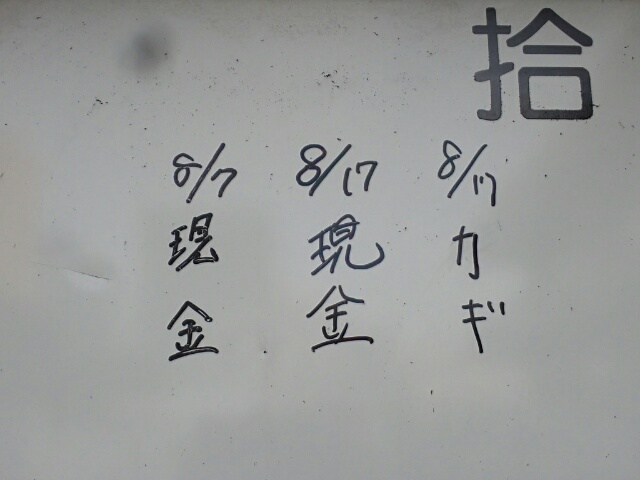 拾
8/17 カギ
8/17 現金
8/7 現金